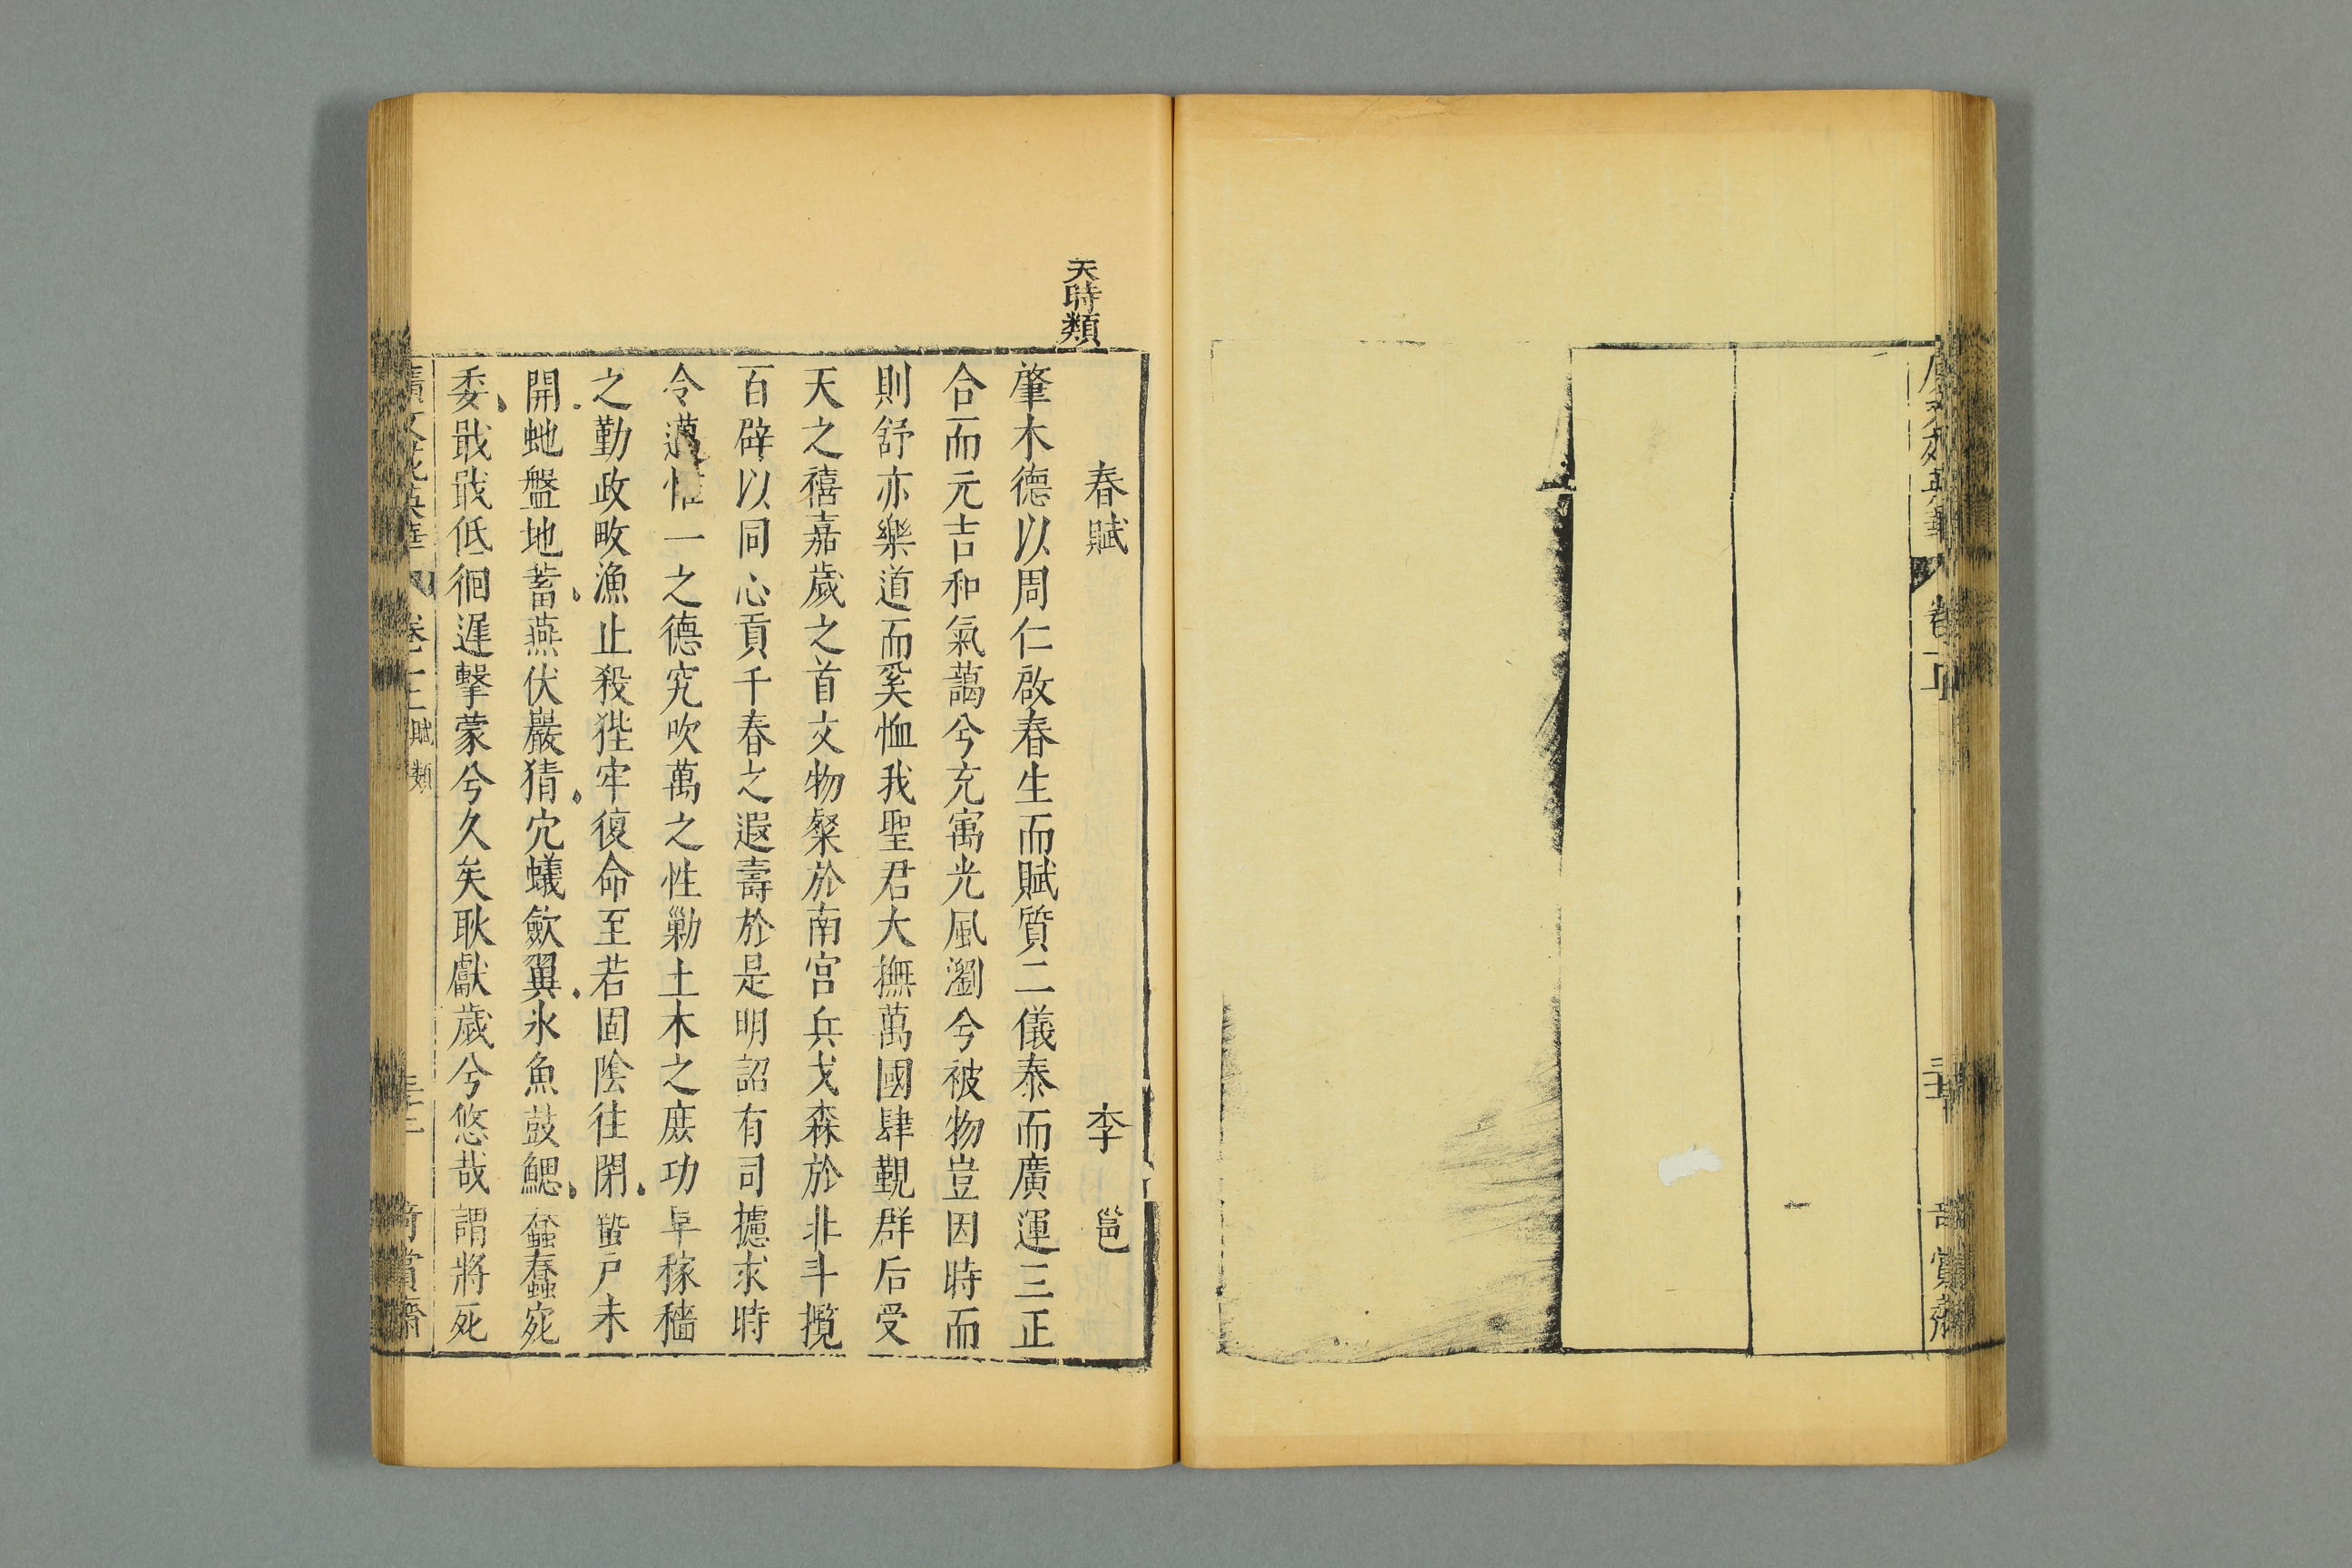 天時類
春賦 李邕
肇木德以周仁啟春生而賦質二儀泰而廣運三正
合而元吉和氣藹兮充寓光風瀏兮被物豈因時而
則舒亦樂道而奚恤我聖君大撫萬國肆覲群后受
天之禧嘉歲之首文物粲於南宮兵戈森於非斗攬
百辟以同心貢千春之遐壽於是明詔有司攄求時
令邁惟一之德究吹萬之性勦土木之庶功阜稼穡
之勤政畋漁止殺狴牢復命至若固陰往閉蟄戶未
開虵盤地蓄燕伏巖猜穴蟻歛翼氷魚鼓鰓蠢蠢宛
委戢戢低徊遲擊蒙兮久矣耿獻歲兮悠哉謂將死
廣文苑英華 卷十二 賦類